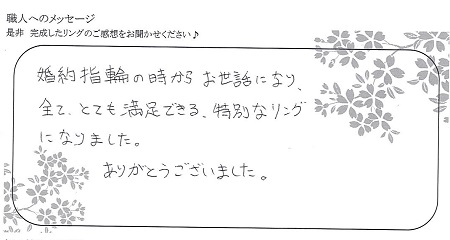 職人へのメッセージ
是非 完成したリングのご感想をお聞かせください♪
婚約指輪の時から お世話になり、
全て、とても満足できる、特別なリング
になりました。
ありがとうございました。